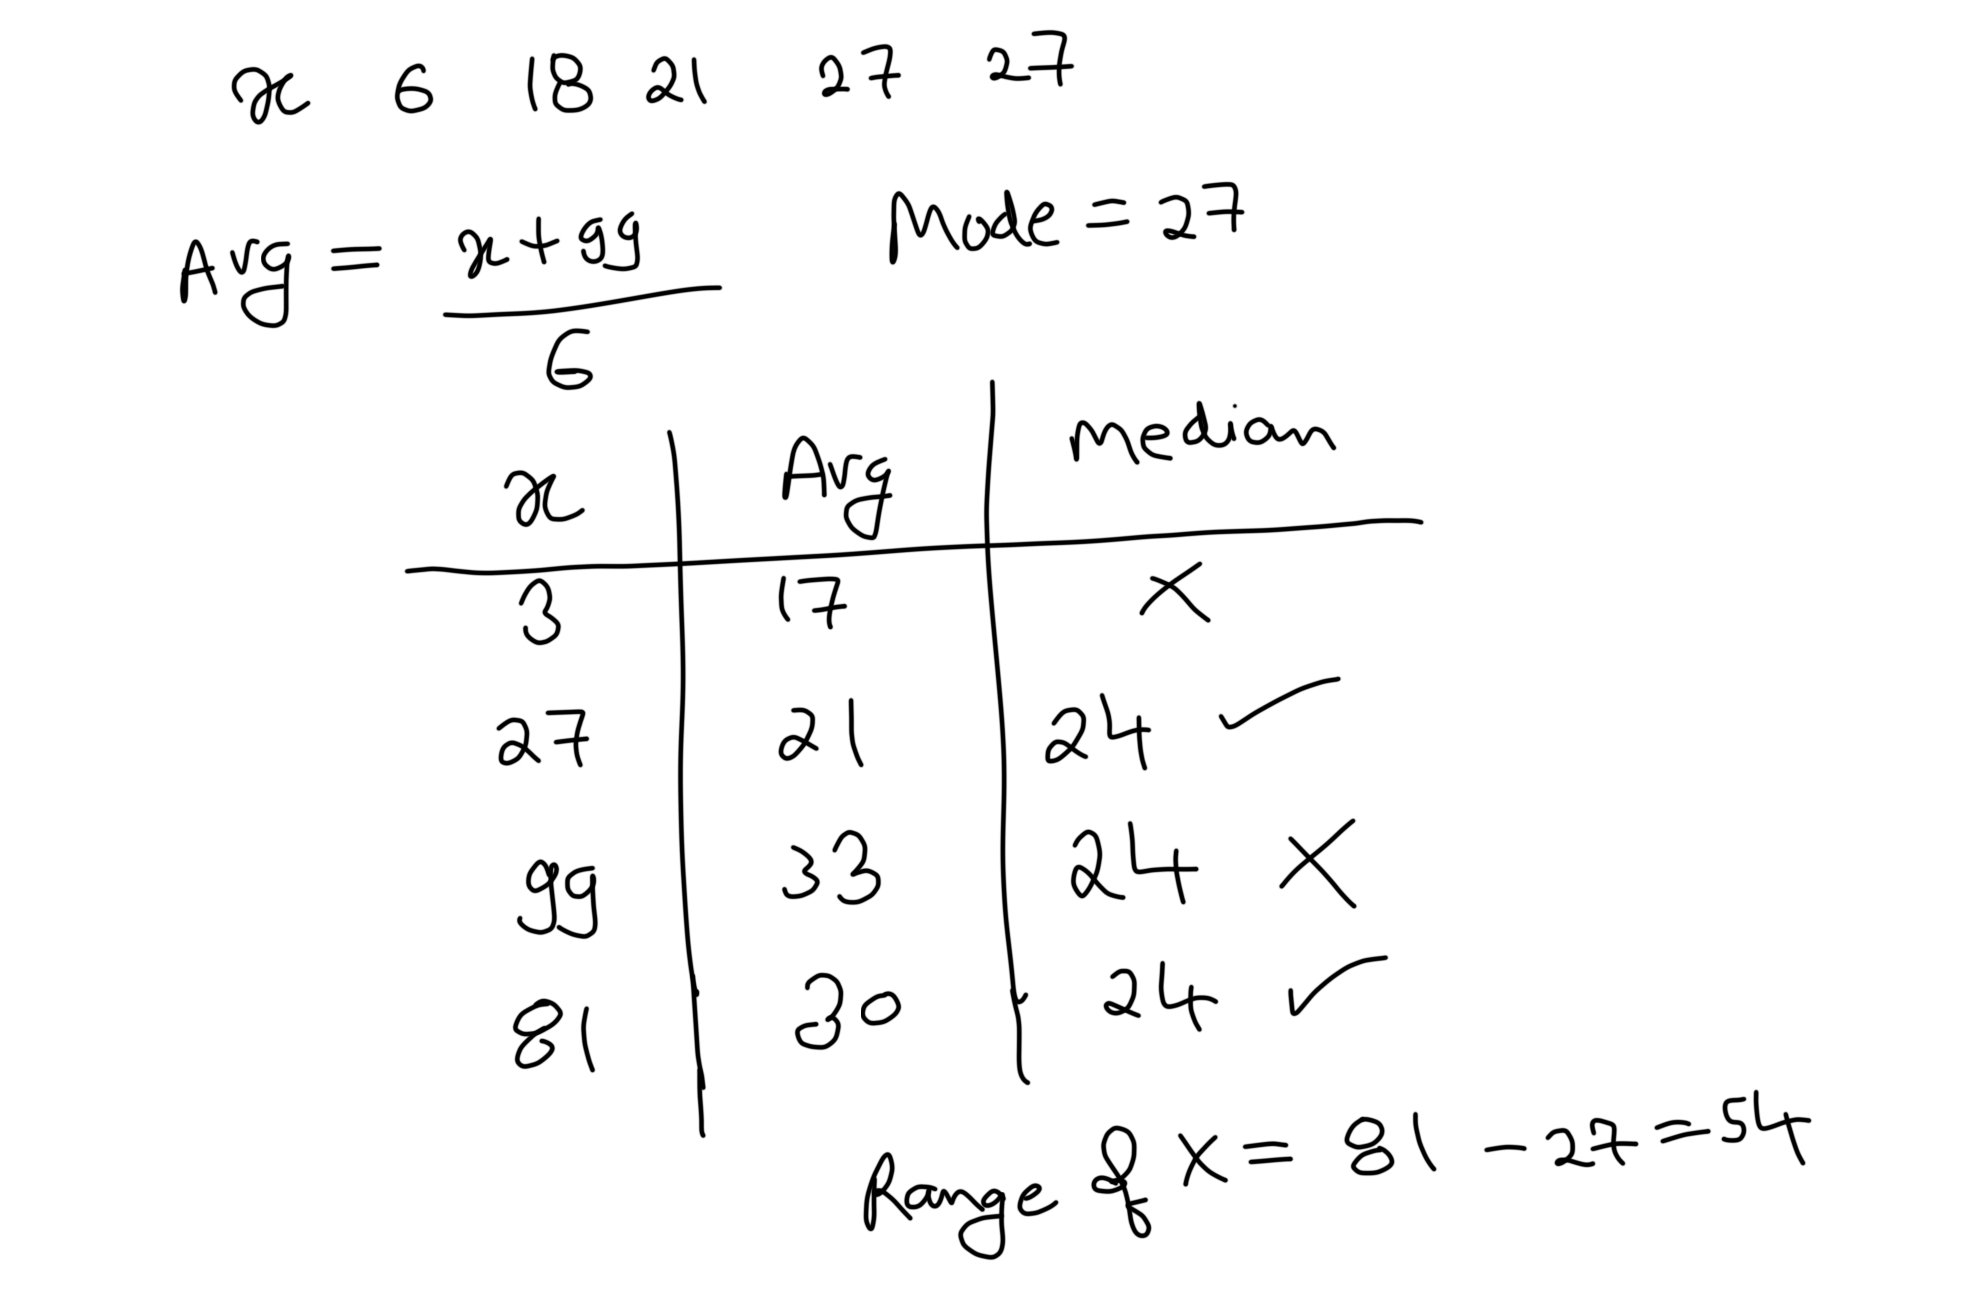 x 6 18 21 27 27
Avg = x+99 Mode = 27
6
x Avg median
3 17 ×
27 21 24 ✓
99 33 24 ×
81 30 24 ✓
Range of x = 81 - 27 = 54